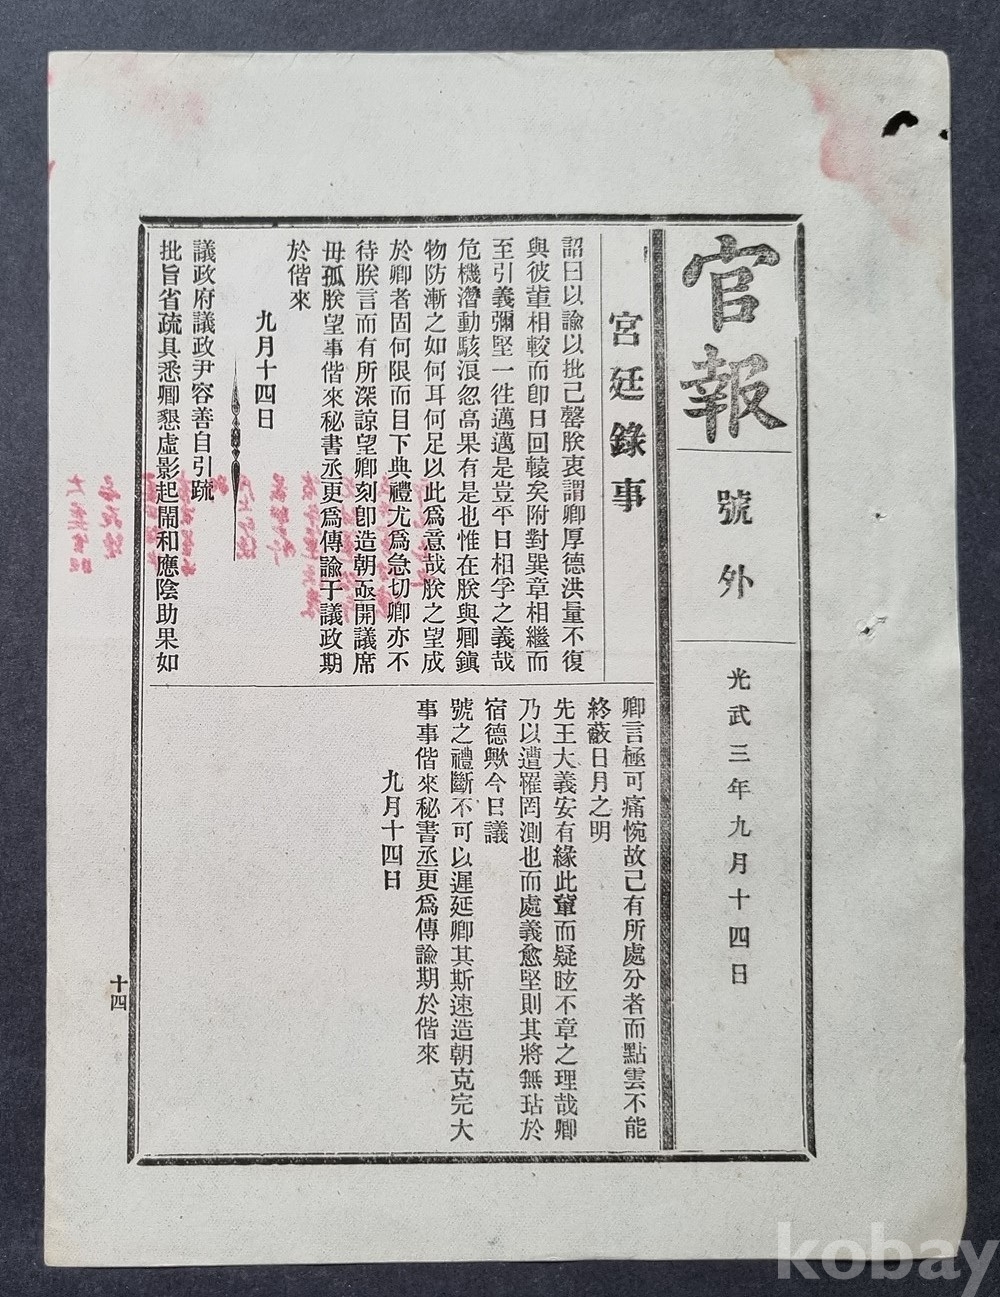 官報
號外
光武三年九月十四日
宮廷錄事
詔曰以諭以批己罄朕衷謂卿厚德洪量不復
與彼輩相較而卽日回轅矣附對巽章相繼而
至引義彌堅一徃邁邁是豈平日相孚之義哉
危機潛動駭浪忽高果有是也惟在朕與卿鎭
物防漸之如何耳何足以此爲意哉朕之望成
於卿者固何限而目下典禮尤爲急切卿亦不
待朕言而有所深諒望卿刻卽造朝亟開議席
毋孤朕望事偕來秘書丞更爲傳諭于議政期
於偕來
九月十四日
議政府議政尹容善自引疏
批旨省疏具悉卿懇虛影起鬧和應陰助果如
卿言極可痛惋故己有所處分者而點雲不能
終蔽日月之明
先王大義安有緣此輩而疑眩不章之理哉卿
乃以遭罹罔測也而處義愈堅則其將無玷於
宿德歟今日議
號之禮斷不可以遲延卿其斯速造朝克完大
事事偕來秘書丞更爲傳諭期於偕來
九月十四日
十四
kobay